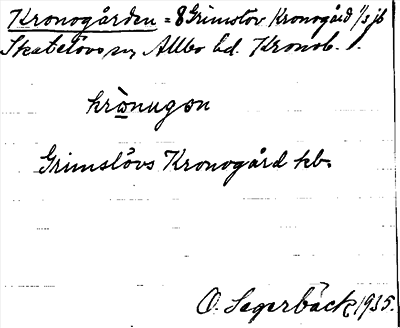 Kronogården = 8 Grimslöv Kronogård 1/3 jb
Skatelövs sn, Allbo hd. Kronob. l.
krònugon
Grimslövs Kronogård kb.
O. Sagerbäck 1935.